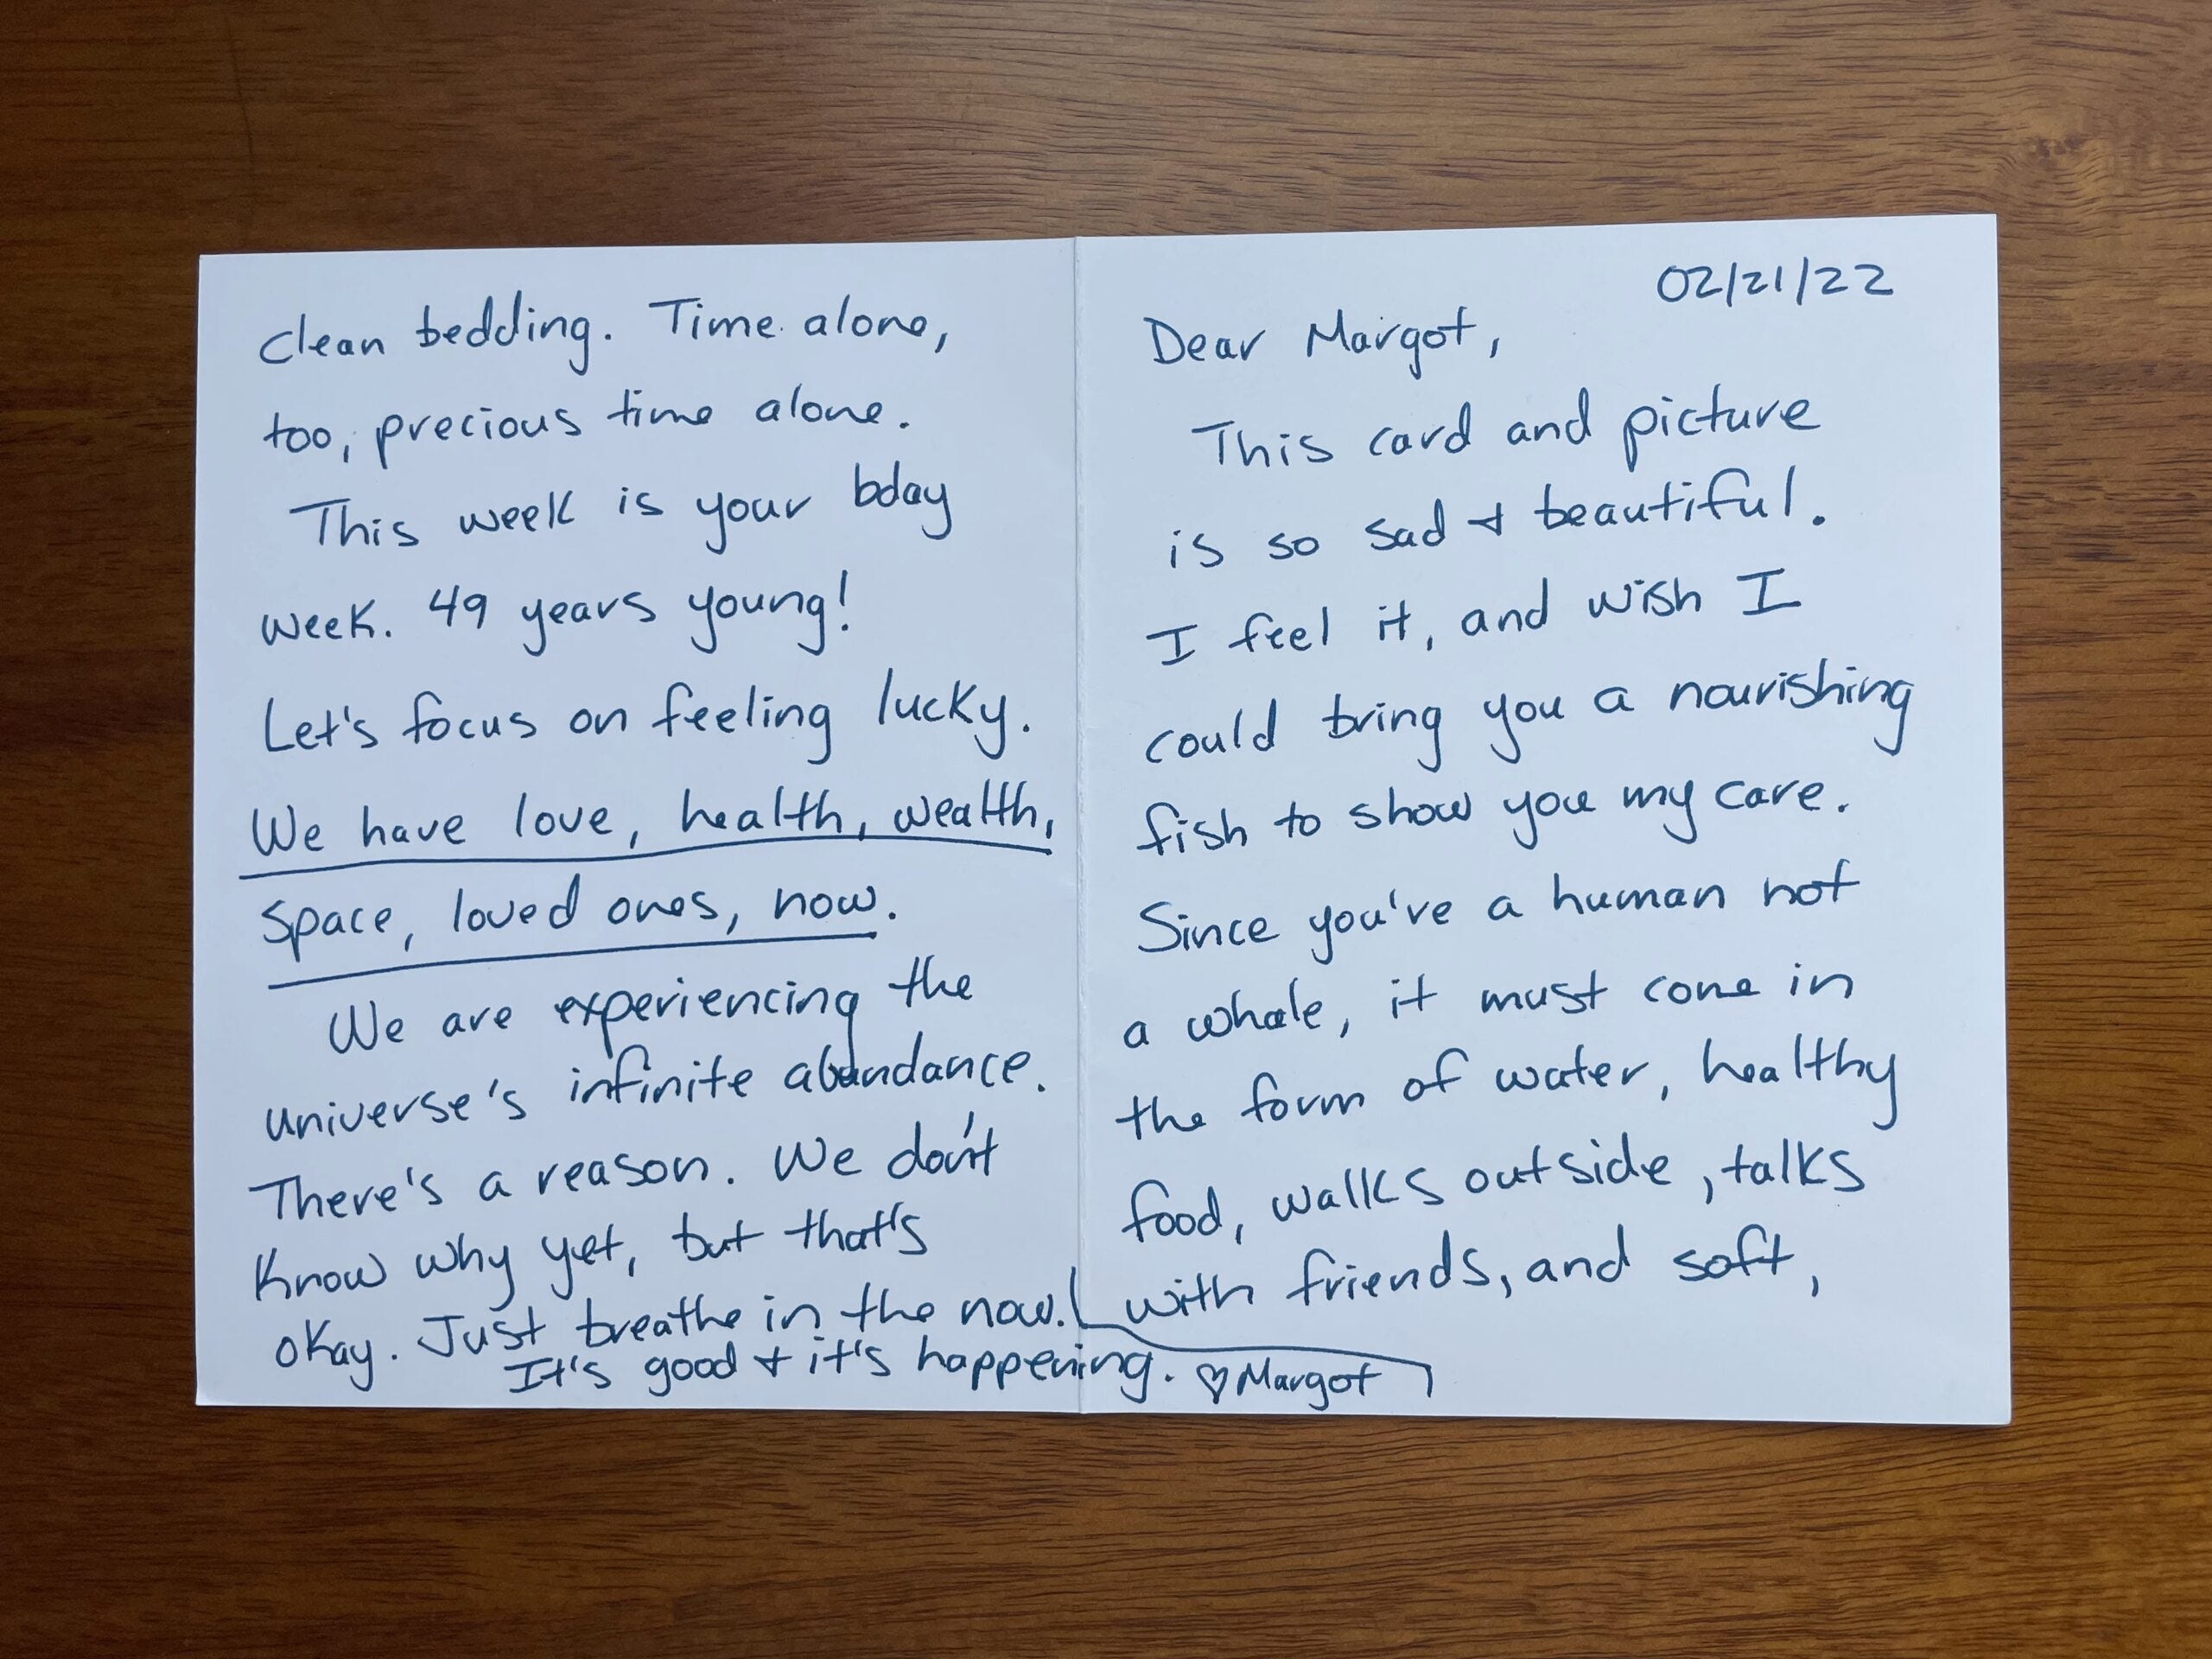 02/21/22
Dear Margot,
This card and picture
is so sad & beautiful.
I feel it, and wish I
could bring you a nourishing
fish to show you my care.
Since you've a human not
a whale, it must come in
the form of water, healthy
food, walks outside, talks
with friends, and soft,
clean bedding. Time alone,
too, precious time alone.
This week is your bday
week. 49 years young!
Let's focus on feeling lucky.
We have love, health, wealth,
space, loved ones, now.
We are experiencing the
universe's infinite abundance.
There's a reason. We don't
know why yet, but that's
okay. Just breathe in the now.
It's good & it's happening. ♡Margot